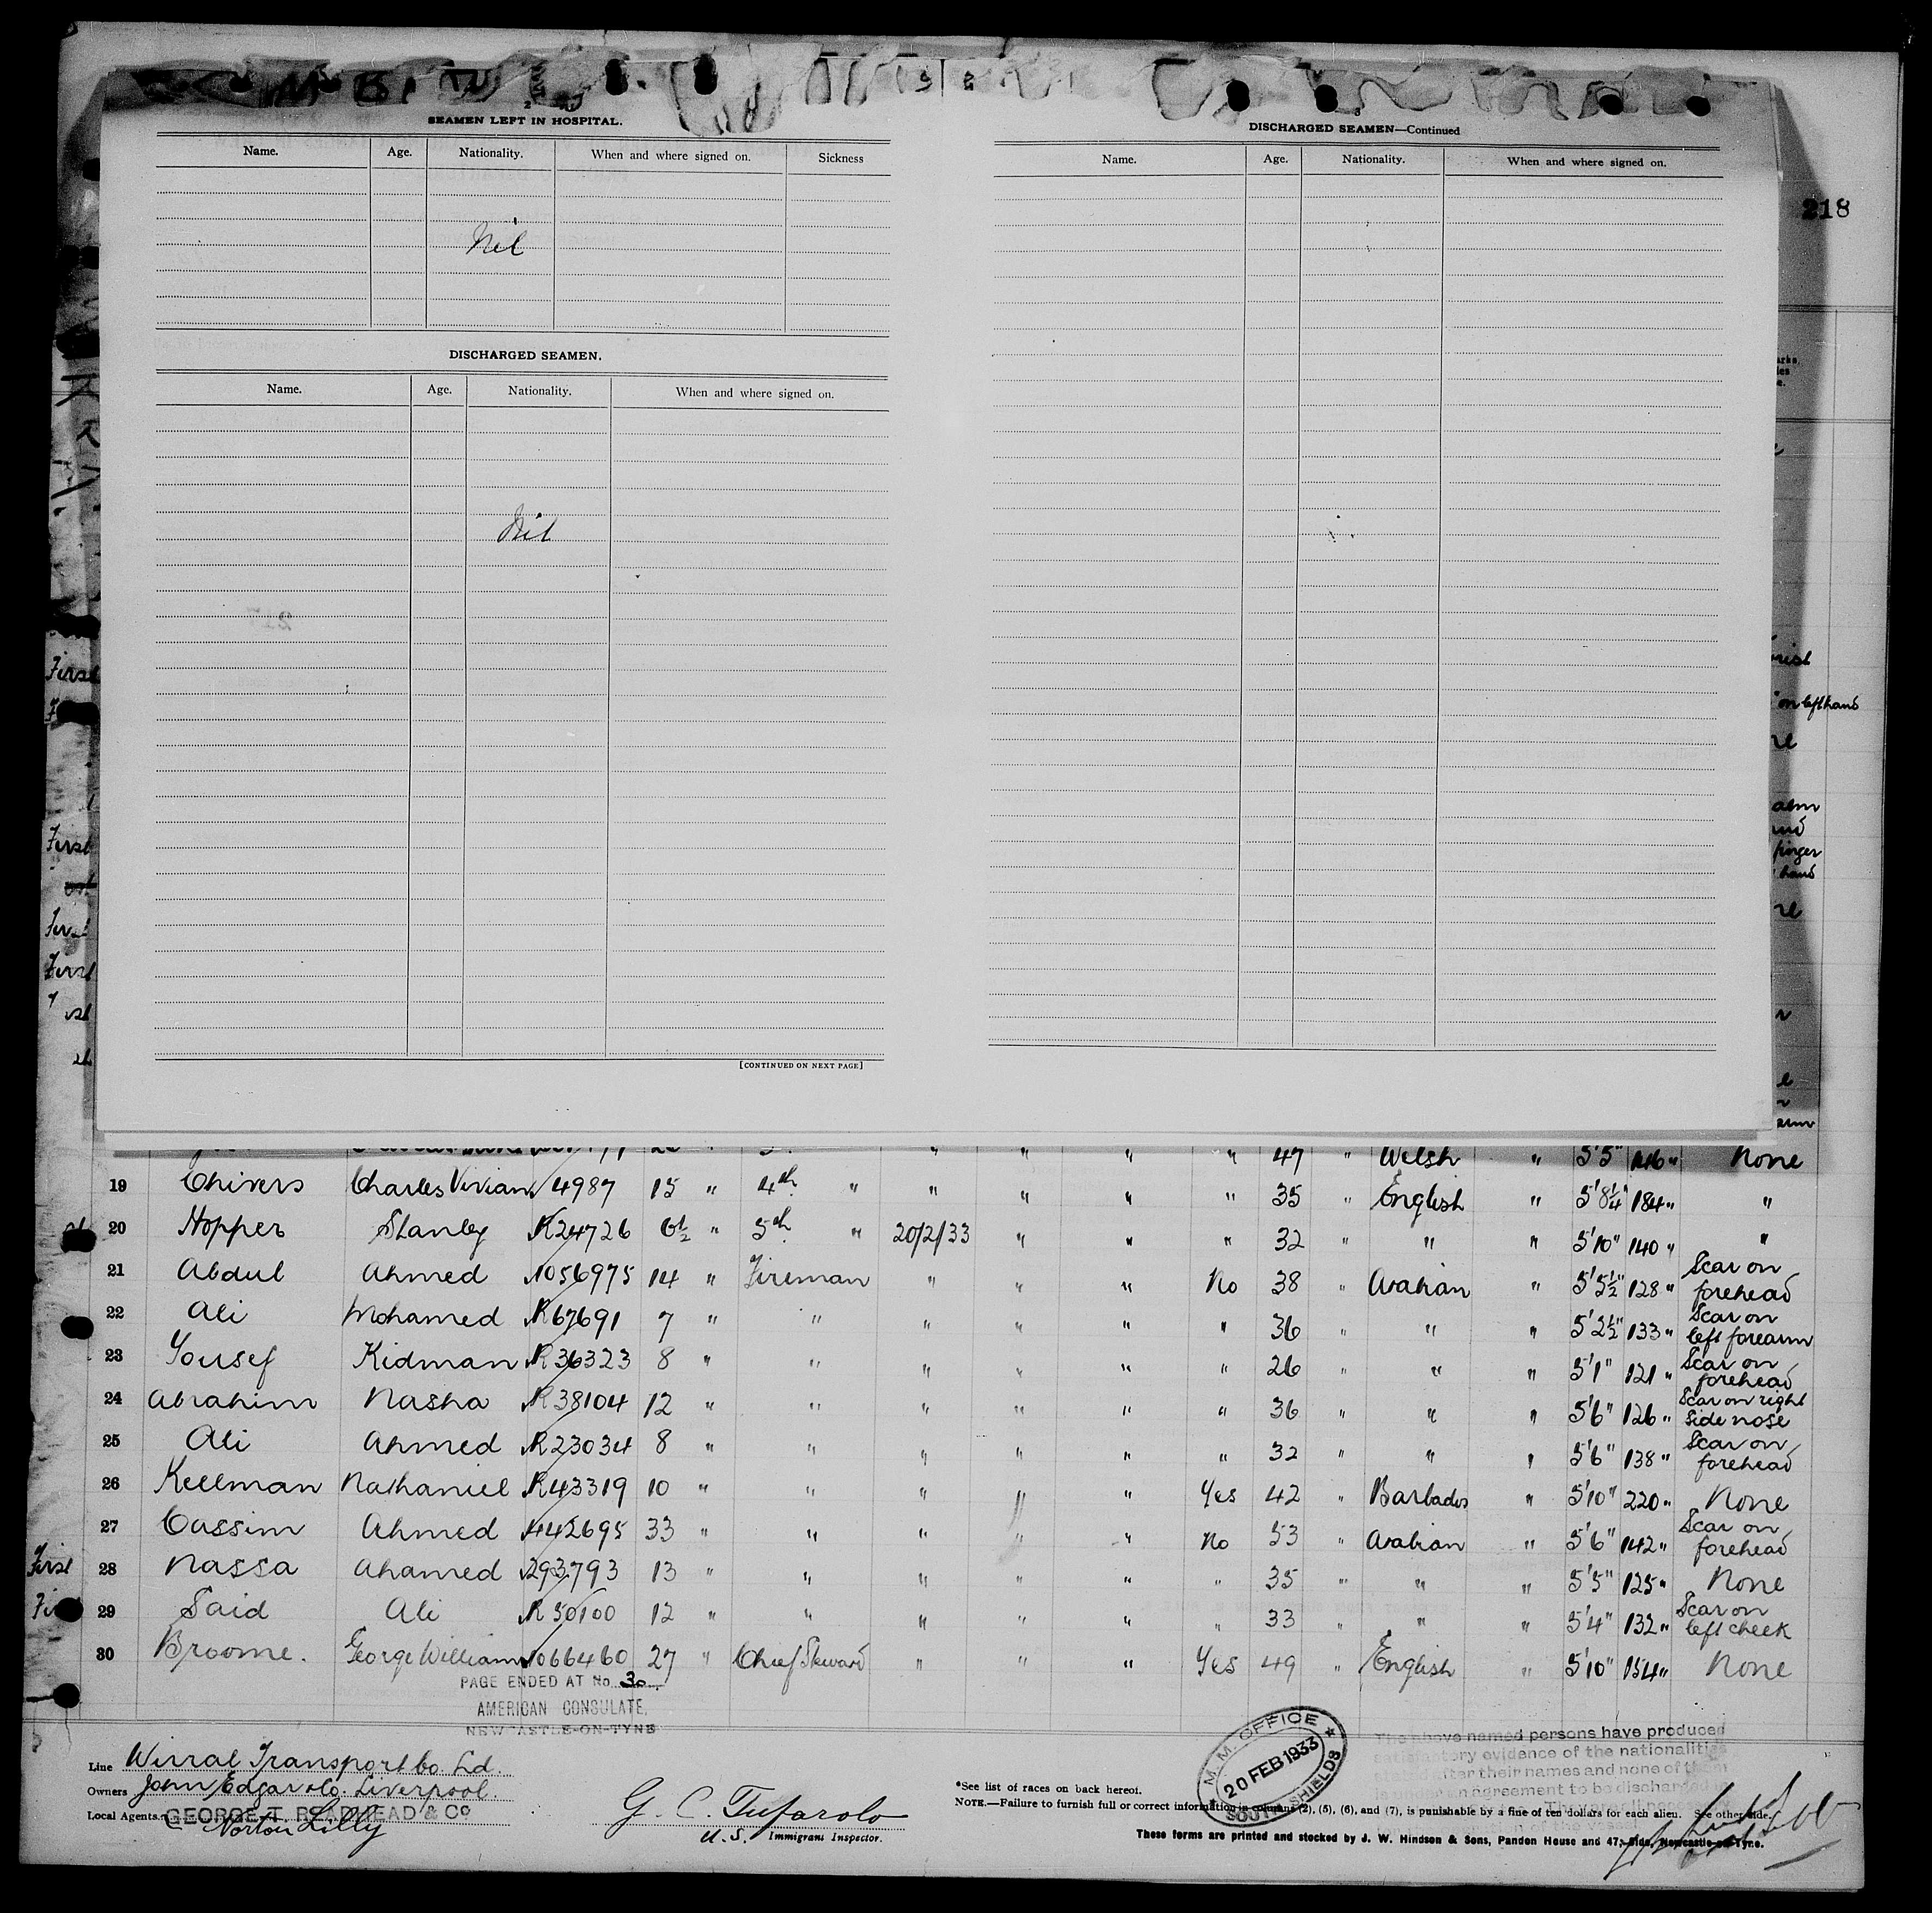 SEAMEN LEFT IN HOSPITAL.
Name. Age. Nationality. When and where signed on. Sickness
Nil
DISCHARGED SEAMEN.
Name. Age. Nationality. When and where signed on.
Nil
[CONTINUED ON NEXT PAGE]
DISCHARGED SEAMEN—Continued
Name. Age. Nationality. When and where signed on.
218
First
on left hand
First
finger
hand
First
First
47 " Welsh " 5'5" 146 " None
19 Chivers Charles Vivian 4987 15 " 4th " " " " " 35 " English " 5'8¼ 184 " "
20 Hopper Stanley R24726 6½ " 5th " 20/2/33 " " " 32 " " " 5'10" 140 " "
21 Abdul Ahmed 1056975 14 " Fireman " " " No 38 " Arabian " 5'5½" 128 " Scar on forehead
22 Ali Mohamed R67691 7 " " " " " " 36 " " " 5'2½" 133 " Scar on left forearm
23 Yousef Kidman R36323 8 " " " " " " 26 " " " 5'1" 121 " Scar on forehead
24 Abrahim Nasha R38104 12 " " " " " " 36 " " " 5'6" 126 " Scar on right side nose
25 Ali Ahmed R23034 8 " " " " " " 32 " " " 5'6" 138 " Scar on forehead
26 Kellman Nathaniel R43319 10 " " " " " Yes 42 " Barbados " 5'10" 220 " None
27 Cassim Ahmed 442695 33 " " " " " No 53 " Arabian " 5'6" 142 " Scar on forehead
First 28 Nassa Ahamed 293793 13 " " " " " " 35 " " " 5'5" 125 " None
29 Said Ali R50100 12 " " " " " " 33 " " " 5'4" 132 " Scar on left cheek
30 Broome. George William 1066460 27 " Chief Steward " " " Yes 49 " English " 5'10" 154 " None
PAGE ENDED AT No. 30
AMERICAN CONSULATE,
NEWCASTLE-ON-TYNE
Line Wirral Transport Co. Ld.
Owners John Edgar & Co. Liverpool.
Local Agents GEORGE T. READHEAD & Co
Norton Lilly
G. C. Tufarolo
U.S. Immigrant Inspector.
M. M. OFFICE
20 FEB 1933
SOUTH SHIELDS
The above named persons have produced
satisfactory evidence of the nationalities
stated after their names and none of them
is under an agreement to be discharged
*See list of races on back hereof.
NOTE.—Failure to furnish full or correct information in columns (2), (5), (6), and (7), is punishable by a fine of ten dollars for each alien. See other side.
These forms are printed and stocked by J. W. Hindson & Sons, Pandon House and 47, Side, Newcastle-on-Tyne.